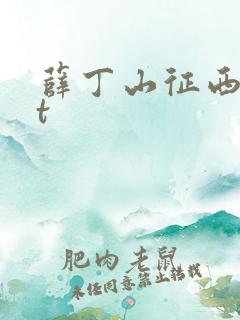 薛丁山征西
t
肥肉老鼠
未经同意禁止转载